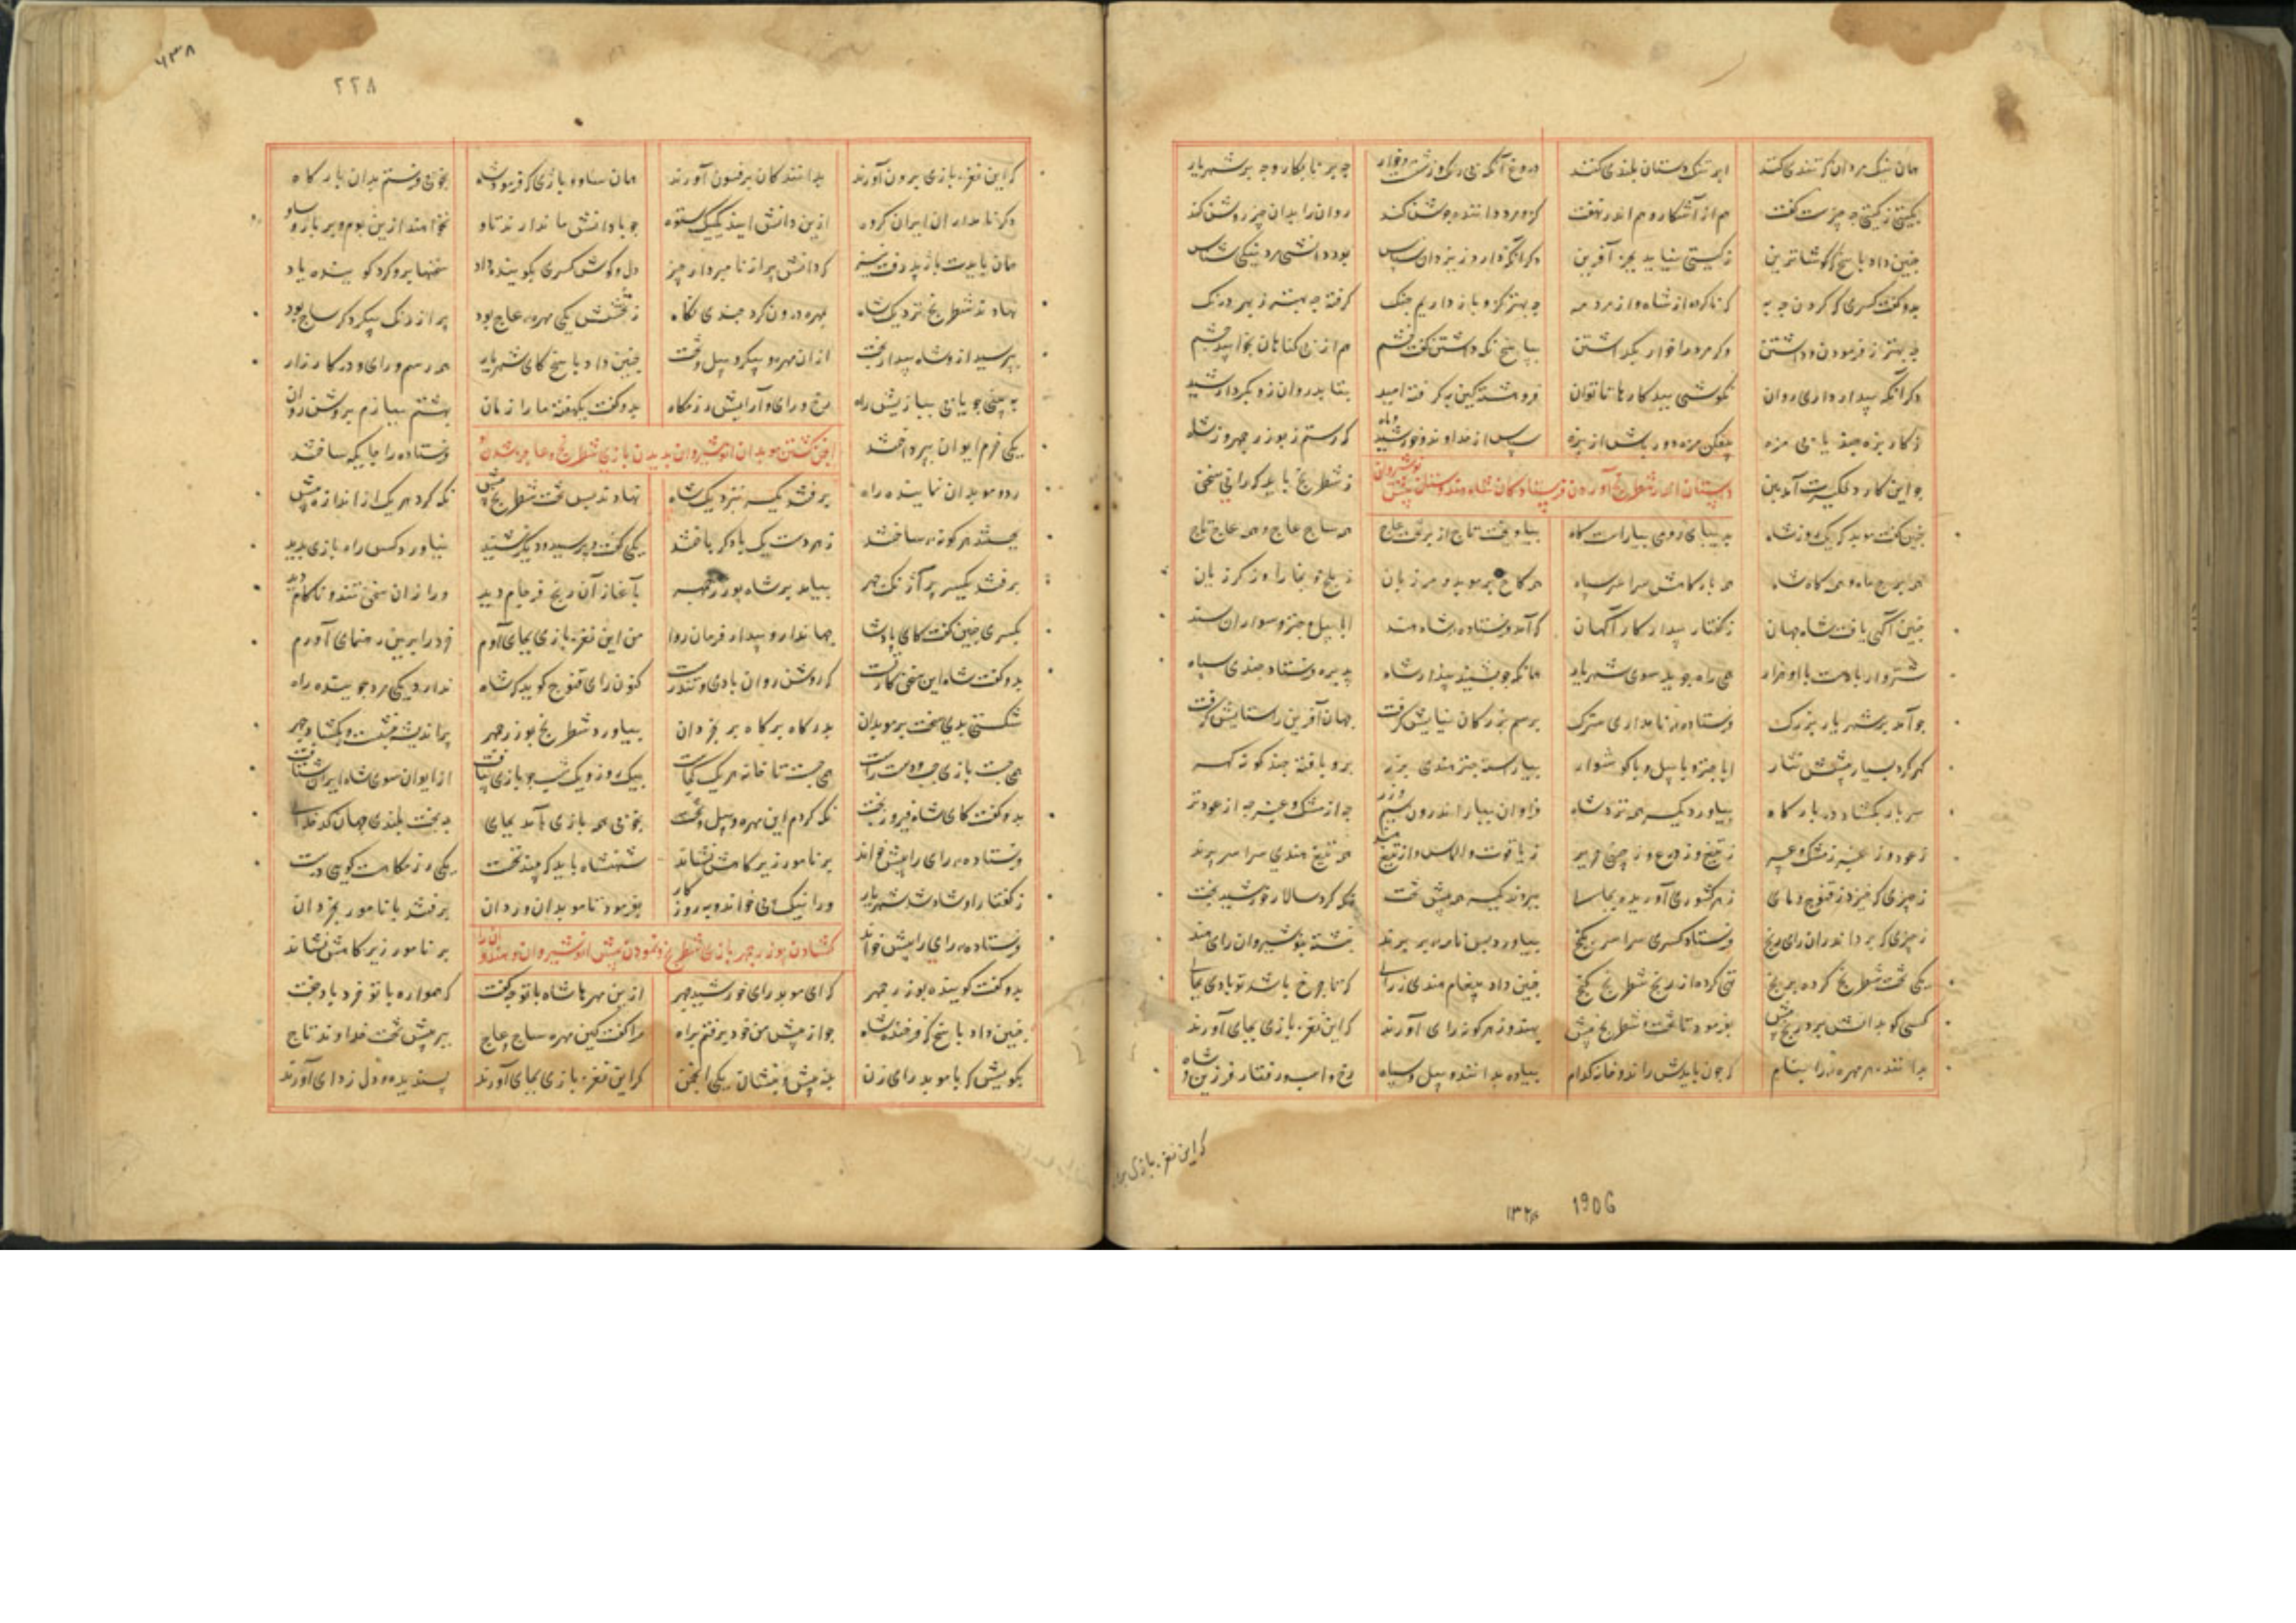 همان نیک مردان که تندی کنند ابر تنک دستان بلندی کنند
بکیتی ز کیتی چه چیزست کفت هم از آشکار و هم اندر نهفت روان را بدان چیز روشن کند
چنین داد پاسخ ز کیتی نیاید بجز آفرین دکر آنکه دارد ز یزدان سپاس بود دانشی مرد نیکی شناس
بدو کفت کسری که کردن چه به که ناکرده از شاه و از مرد مه چه بهتر کزو باز داریم چنک کرفته چه بهتر ز بهر درنک
چه بهتر ز فرمودن و داشتن وکر مرد را خوار بکذاشتن بپاسخ نکه داشتن کفت خشم هم از بی کناهان بخوابید چشم
دکر آنکه بیدار داری روان بکوشی ببد کارها تا توان فروهشته کین بر کرفته امید بتابد روان زو بکردار شید
ز کار بزه چند یابی مزه بیفکن مزه دور باش از بزه سپاس از خداوند خورشید و ماه که رستم ز بوزرجمهر و ز شاه
چو این کار دلکیرت آمد ببن ز شطرنج باید که رانی سخن
داستان اندر شطرنج آوردن فرستادکان شاه هندوستان پیش نوشیروان
چنین کفت موبد که یک روز شاه بدیبای رومی بیاراست کاه بیاویخت تاج از بر تخت عاج همه ساج عاج و همه عاج تاج
همه برج ماه و همه کاه شاه همه بارکاهش سراسر سپاه همه کاخ پر موبد و مرزبان ز بلخ و
چنین آکهی یافت شاه جهان ز کفتار بیدار کار آکهان که آمد فرستاده شاه هند ابا پیل و چتر و سواران سند
شتروار با دست با او هزار همی راه جوید سوی شهریار همانکه چو بشنید بیدار شاه پذیره فرستاد چندی سپاه
چو آمد بر شهریار بزرک فرستاده نامدار سترک برسم بزرکان نیایش کرفت جهان آفرین را ستایش کرفت
کهر کرد بسیار پیشش نثار ابا چتر و با پیل و با کوشوار بیاراسته چتر هندی بزر برو بافته چند کونه کهر
سر بار بکشاد در بارکاه بیاورد یکسر همه نزد شاه فراوان ببار اندرون سیم و زر چه از مشک و عنبر چه از عود تر
ز یاقوت و الماس و از تیغ هند همه تیغ هندی سراسر پرند
ز چیزی که خیزد ز قنوج و مای ببردند یکسر همه پیش تخت نکه کرد سالار خورشید بخت
ز چیزی که برد اندران رای رنج فرستاد کسری سراسر بکنج بیاورد پس نامه بر پرند نبشته بنوشیروان رای هند
یکی تخت شطرنج کرده برنج تهی کرده از رنج شطرنج کنج چنین داد پیغام هندی ز رای که تا چرخ باشد تو بادی بجای
کسی کو بدانش برد رنج بیش بفرمود تا تخت شطرنج پیش بنهند و ز هر کونه رای آورند که این نغز بازی بجای آورند
بدانند هر مهره را بنام که چون بایدش راندن و خانه کدام پیاده بدانند و پیل و سپاه رخ و اسب و رفتار فرزین و شاه
که این نغز بازی بر
۱۳۲۴ 1906
۶۳۸
۲۲۸
که این نغز بازی برون آورند بدانندکان بر فسون آورند همان ساو و باژی که فرمود شاه بخوبی فرستم بدان بارکاه
وکر نامداران ایران کروه ازین دانش آیند یکیک ستوه چو با دانش ما ندارند تاو نخواهند ازین بوم و بر باژ و ساو
همان باژ باید پذیرفت نیز که دانش به از نامبردار چیز دل و کوش کسری بکوینده داد سخنها برو کرد کوینده یاد
نهادند شطرنج نزدیک شاه بمهره درون کرد چندی نکاه ز تختش یکی مهره عاج بود پر از رنک پیکر دکر ساج بود
بپرسید ازو شاه پیدار بخت از آن مهره و پیکر و پیل و تخت چنین داد پاسخ که ای شهریار همه رسم و رای و در کارزار
ببینی چو یابی ببازیش راه رخ و رای و آرایش رزمکاه بدو کفت یکهفته ما را زمان بهشتم ببازم بروشن روان
یکی خرم ایوان بپرداختند فرستاده را جایکه ساختند
انجمن کشتن موبدان انوشیروان بدیدن بازی شطرنج و عاجز شدن
رد و موبدان نماینده راه برفتند یکسر بنزدیک شاه نهادند پس تخت شطرنج پیش نکه کرد هر یک ز اندازه بیش
بجستند هر کونه ساختند ز هر دست یک با دکر باختند یکی کفت و پرسید و دیکر شنید نیاورد کس راه بازی پدید
برفتند یکسر پر آژنک چهر بیامد بر شاه بوزرجمهر بآغاز آن رنج فرجام دید ورا زان سخن تند و ناکام دید
بکسری چنین کفت کای پادشا جهاندار و بیدار فرمان روا من این نغز بازی بجای آورم خرد را برین رهنمای آورم
بدو کفت شاه این سخن کار تست که روشن روان بادی و تندرست کنون رای قنوج کوید که شاه ندارد یکی مرد جوینده راه
شکستی بدی سخت بر موبدان بدرکاه برکاه بر بخردان بیاورد شطرنج بوزرجمهر پر اندیشه بنشست و بکشاد چهر
همی جست بازی چپ و دست راست همی جست تا خانه هر یک کجاست بیک روز و یک شب چو بازی بیافت از ایوان سوی شاه ایران شتافت
بدو کفت کای شاه فیروز بخت نکه کردم این مهره و پیل و تخت بخوبی همه بازی آمد بجای به بخت بلند جهان کدخدای
فرستاده رای را پیش خواند بر نامور زیر کاهش نشاند شهنشاه باید که بیند نخست یکی رزمکاهست کویی درست
ز کفتار او شاد شد شهریار ورا نیک پی خواند و به روزکار بفرمود تا موبدان و ردان برفتند با نامور بخردان
فرستاده رای را پیش خواند بر نامور زیر کاهش نشاند
کشادن بوزرجمهر بازی شطرنج و نمودن پیش انوشیروان و هندوانرا
بدو کفت کوینده بوزرجمهر که ای موبد رای خورشید چهر ازین مهرها شاه با تو چه کفت که همواره با تو خرد باد جفت
چنین داد پاسخ که فرخنده شاه چو از پیش من خود برفتم براه مرا کفت کین مهره ساج و عاج ببر پیش تخت خداوند تاج
بکویش که با موبد رای زن بنه پیش و بنشان یکی انجمن کر این نغز بازی بجای آورند پسندیده و دل زدای آورند